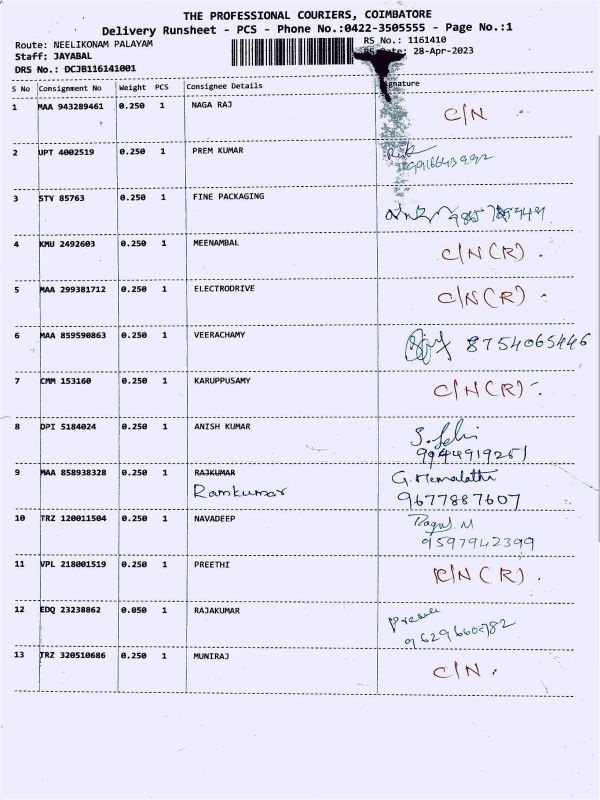 THE PROFESSIONAL COURIERS, COIMBATORE
Delivery Runsheet - PCS - Phone No.:0422-3505555 - Page No.:1
Route: NEELIKONAM PALAYAM RS No.: 1161410
Staff: JAYABAL Date: 28-Apr-2023
DRS No.: DCJB116141001
S No Consignment No Weight PCS Consignee Details
1 MAA 943289461 0.250 1 NAGA RAJ C/N
2 UPT 4002519 0.250 1 PREM KUMAR
3 STY 85763 0.250 1 FINE PACKAGING
4 KMU 2492603 0.250 1 MEENAMBAL C/N (R).
5 MAA 299381712 0.250 1 ELECTRODRIVE C/N (R)
6 MAA 859590863 0.250 1 VEERACHAMY 8754065446
7 CMM 153160 0.250 1 KARUPPUSAMY C/N (R)
8 DPI 5184024 0.250 1 ANISH KUMAR
9944919251
9 MAA 858938328 0.250 1 RAJKUMAR G. Hemalatha
Ramkumar 9677887607
10 TRZ 120011504 0.250 1 NAVADEEP
9597942399
11 VPL 218001519 0.250 1 PREETHI C/N (R).
12 EDQ 23238862 0.050 1 RAJAKUMAR
13 TRZ 320510686 0.250 1 MUNIRAJ C/N.